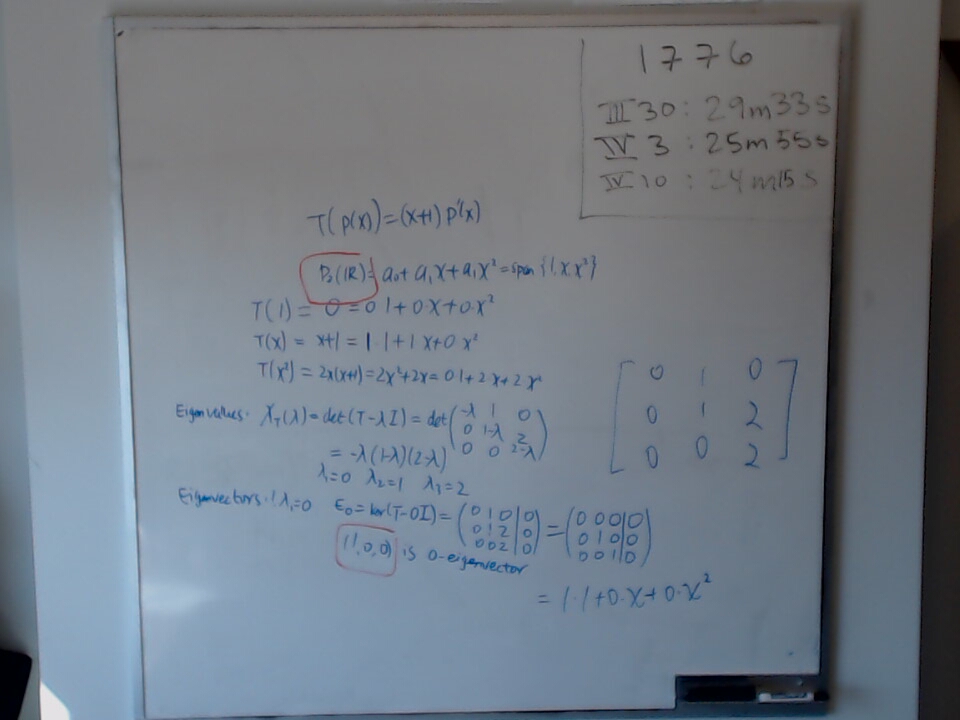 1776
III 30 : 29m33s
IV 3 : 25m55s
IV 10 : 24m15s
T(p(x)) = (x+1) p'(x)
P₂(IR) = a₀ + a₁x + a₁x² = span {1, x x²}
T(1) = 0 = 0 1 + 0 x + 0·x²
T(x) = x+1 = 1 1 + 1 x + 0 x²
T(x²) = 2x(x+1) = 2x²+2x = 0 1 + 2 x + 2 x²
0 1 0
0 1 2
0 0 2
Eigenvalues: χ_T(λ) = det(T-λI) = det
-λ 1 0
0 1-λ 2
0 0 2-λ
= -λ(1-λ)(2-λ)
λ=0 λ₂=1 λ₃=2
Eigenvectors: λ₁=0 E₀ = ker(T-0I) =
0 1 0 | 0
0 1 2 | 0
0 0 2 | 0
=
0 0 0 | 0
0 1 0 | 0
0 0 1 | 0
(1,0,0) is 0-eigenvector
= 1·1 + 0·x + 0·x²